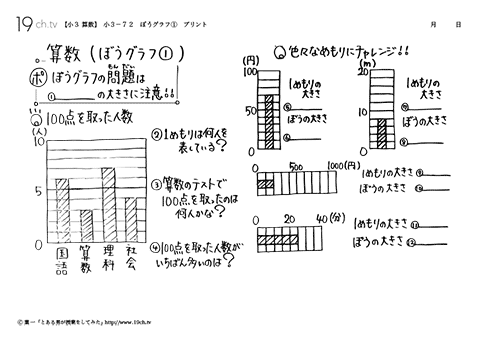 19ch.tv 【小3 算数】 小3-72 ぼうグラフ① プリント 月 日
算数 (ぼうグラフ①)
ポ ぼうグラフの問題は
もんだい
①______の大きさに注意!!
100点を取った人数
(人)
10
5
0
国語
算数
理科
社会
②1めもりは何人を
表している?
③算数のテストで
100点を取ったのは
何人かな?
④100点を取った人数が
いちばん多いのは?
色々なめもりにチャレンジ!!
(円)
100
50
0
1めもりの
大きさ
⑤
ぼうの大きさ
⑥
(m)
20
10
0
1めもりの
大きさ
⑦
ぼうの大きさ
⑧
0 500 1000(円)
1めもりの大きさ ⑨
ぼうの大きさ ⑩
0 20 40(分)
1めもりの大きさ ⑪
ぼうの大きさ ⑫
Ⓒ 葉一「とある男が授業をしてみた」http://www.19ch.tv